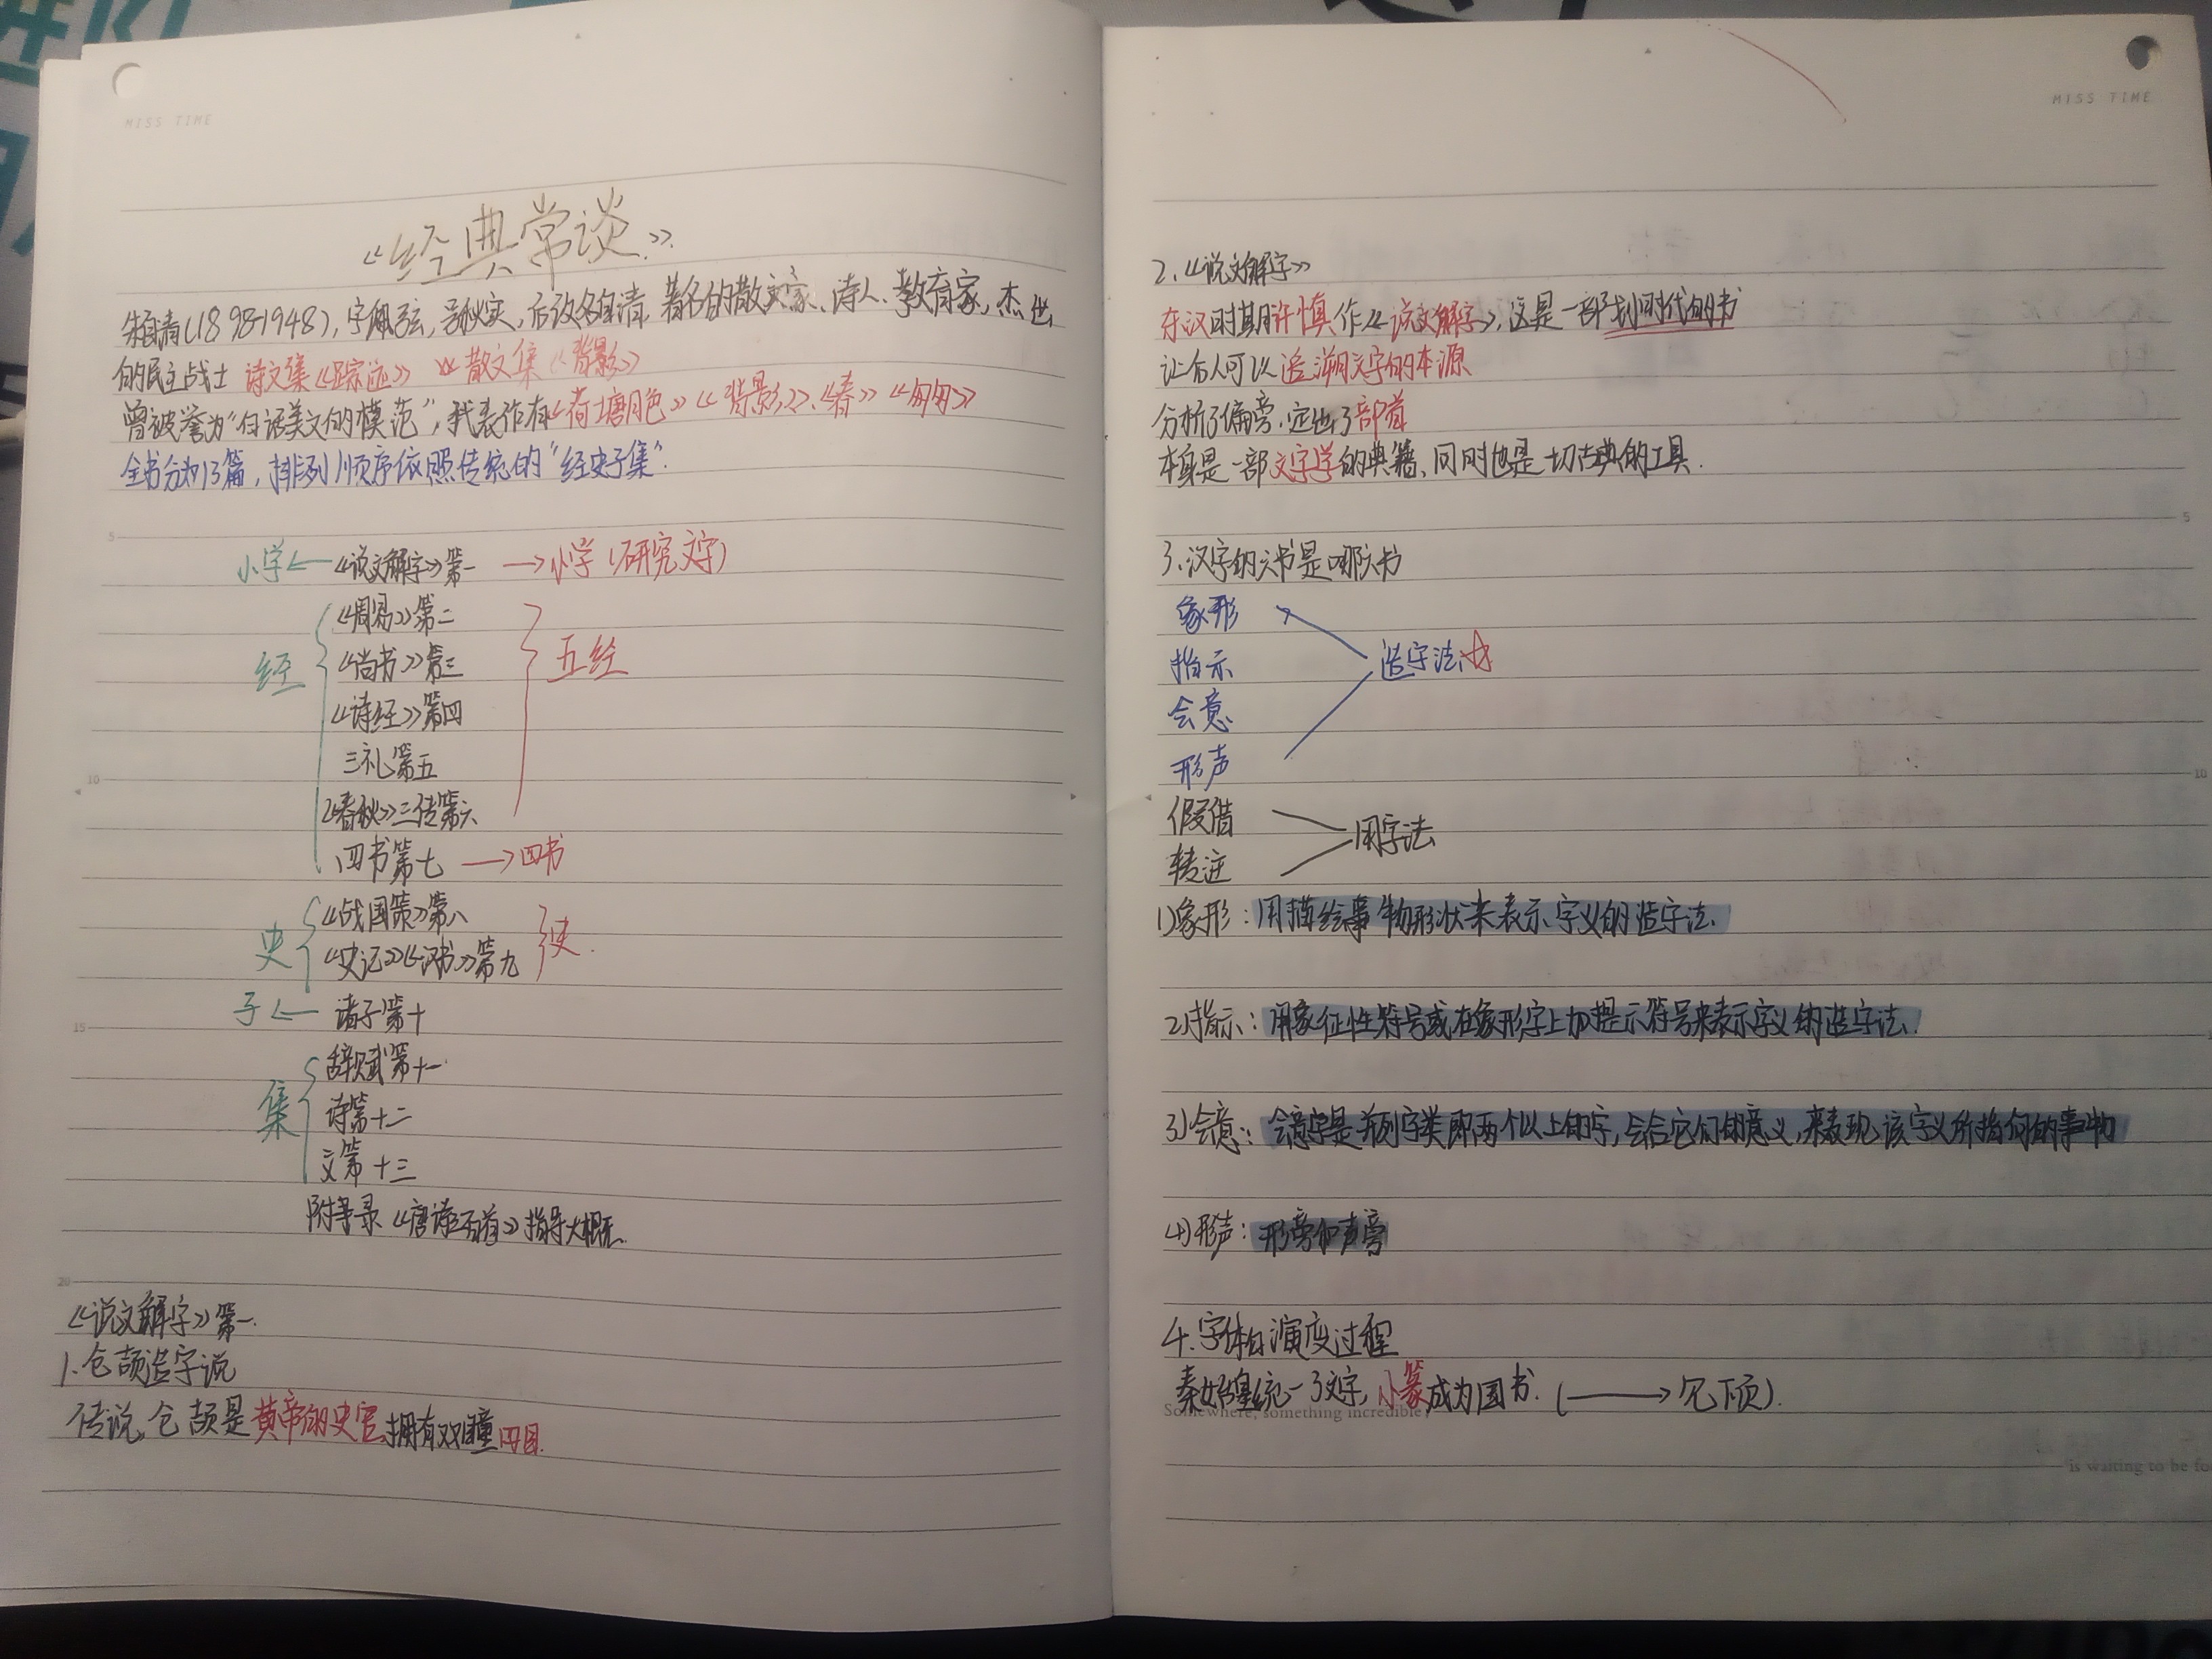 MISS TIME
《经典常谈》
朱自清(1898-1948),字佩弦,号秋实,后改名自清 著名的散文家、诗人、教育家,杰出
的民主战士 诗文集《踪迹》 散文集《背影》
曾被誉为“白话美文的模范”,代表作有《荷塘月色》《背影》、《春》《匆匆》
全书分为13篇,排列顺序依照传统的“经史子集”.
5
小学← 《说文解字》第一 →小学(研究文字)
《周易》第二
经 《尚书》第三 五经
《诗经》第四
三礼第五
10
《春秋》三传第六
四书第七 →四书
《战国策》第八
史 《史记》《汉书》第九 史.
子← 诸子第十
15
辞赋第十一
集 诗第十二
文第十三
附录《唐诗三百首》指导大概.
20
《说文解字》第一.
1.仓颉造字说
传说,仓颉是黄帝的史官,拥有双瞳四目.
MISS TIME
2.《说文解字》
东汉时期许慎作《说文解字》,这是一部划时代的书
让后人可以追溯文字的本源
分析了偏旁,定出了部首
本身是一部文字学的典籍、同时也是一切古典的工具.
5
3.汉字的六书是哪六书
象形
指示 造字法☆
会意
形声
10
假借
用字法
转注
1)象形:用描绘事物形状来表示字义的造字法.
2)指示:用象征性符号或在象形字上加提示符号来表示字义的造字法.
3)会意:会意字是并列字类即两个以上的字,会合它们的意义,来表现该字义所指向的事物
4)形声:形旁和声旁
4.字体的演变过程
秦始皇统一了文字,小篆成为国书.(→见下页).
Somewhere, something incredible
is waiting to be fo